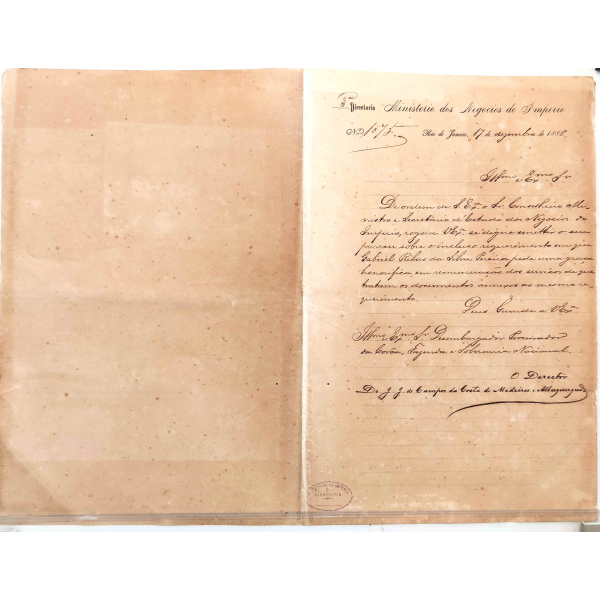 3ª Directoria Ministerio dos Negocios do Imperio
Nº 1075. Rio de Janeiro, 17 de dezembro de 1886.
Illmo e Exmo Sr
De ordem de S. Exª. o Sr. Conselheiro Mi-
nistro e Secretario d'Estado dos Negocios do
Imperio, rogo a V. Exª. se digne emittir o seu
parecer sobre o incluso requerimento em que
Gabriel Ribas da Silva Pereira pede uma graça
honorifica em remuneração dos serviços de que
tratam os documentos annexos ao mesmo re-
querimento.
Deus Guarde a V. Exª.
Illmo e Exmo Sr Desembargador Procurador
da Corôa, Fazenda e Soberania Nacional.
O Director
Dr. J. J. de Campos da Costa de Medeiros e Albuquerque
DIRECTORIA